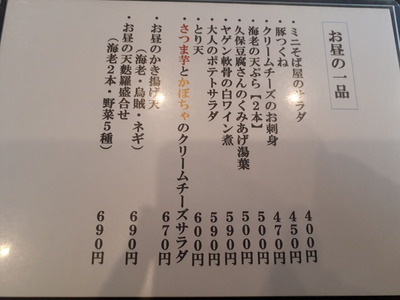 お昼の一品
・ミニそば屋のサラダ 400円
・豚つくね 450円
・クリームチーズのお刺身 470円
・海老の天ぷら【2本】 500円
・久保豆腐さんのくみあげ湯葉 500円
・ヤゲン軟骨の白ワイン煮 590円
・大人のポテトサラダ 590円
・とり天 600円
・さつま芋とかぼちゃのクリームチーズサラダ 670円
・お昼のかき揚げ天
（海老・烏賊・ネギ） 690円
・お昼の天麩羅盛合せ
（海老2本・野菜5種） 690円